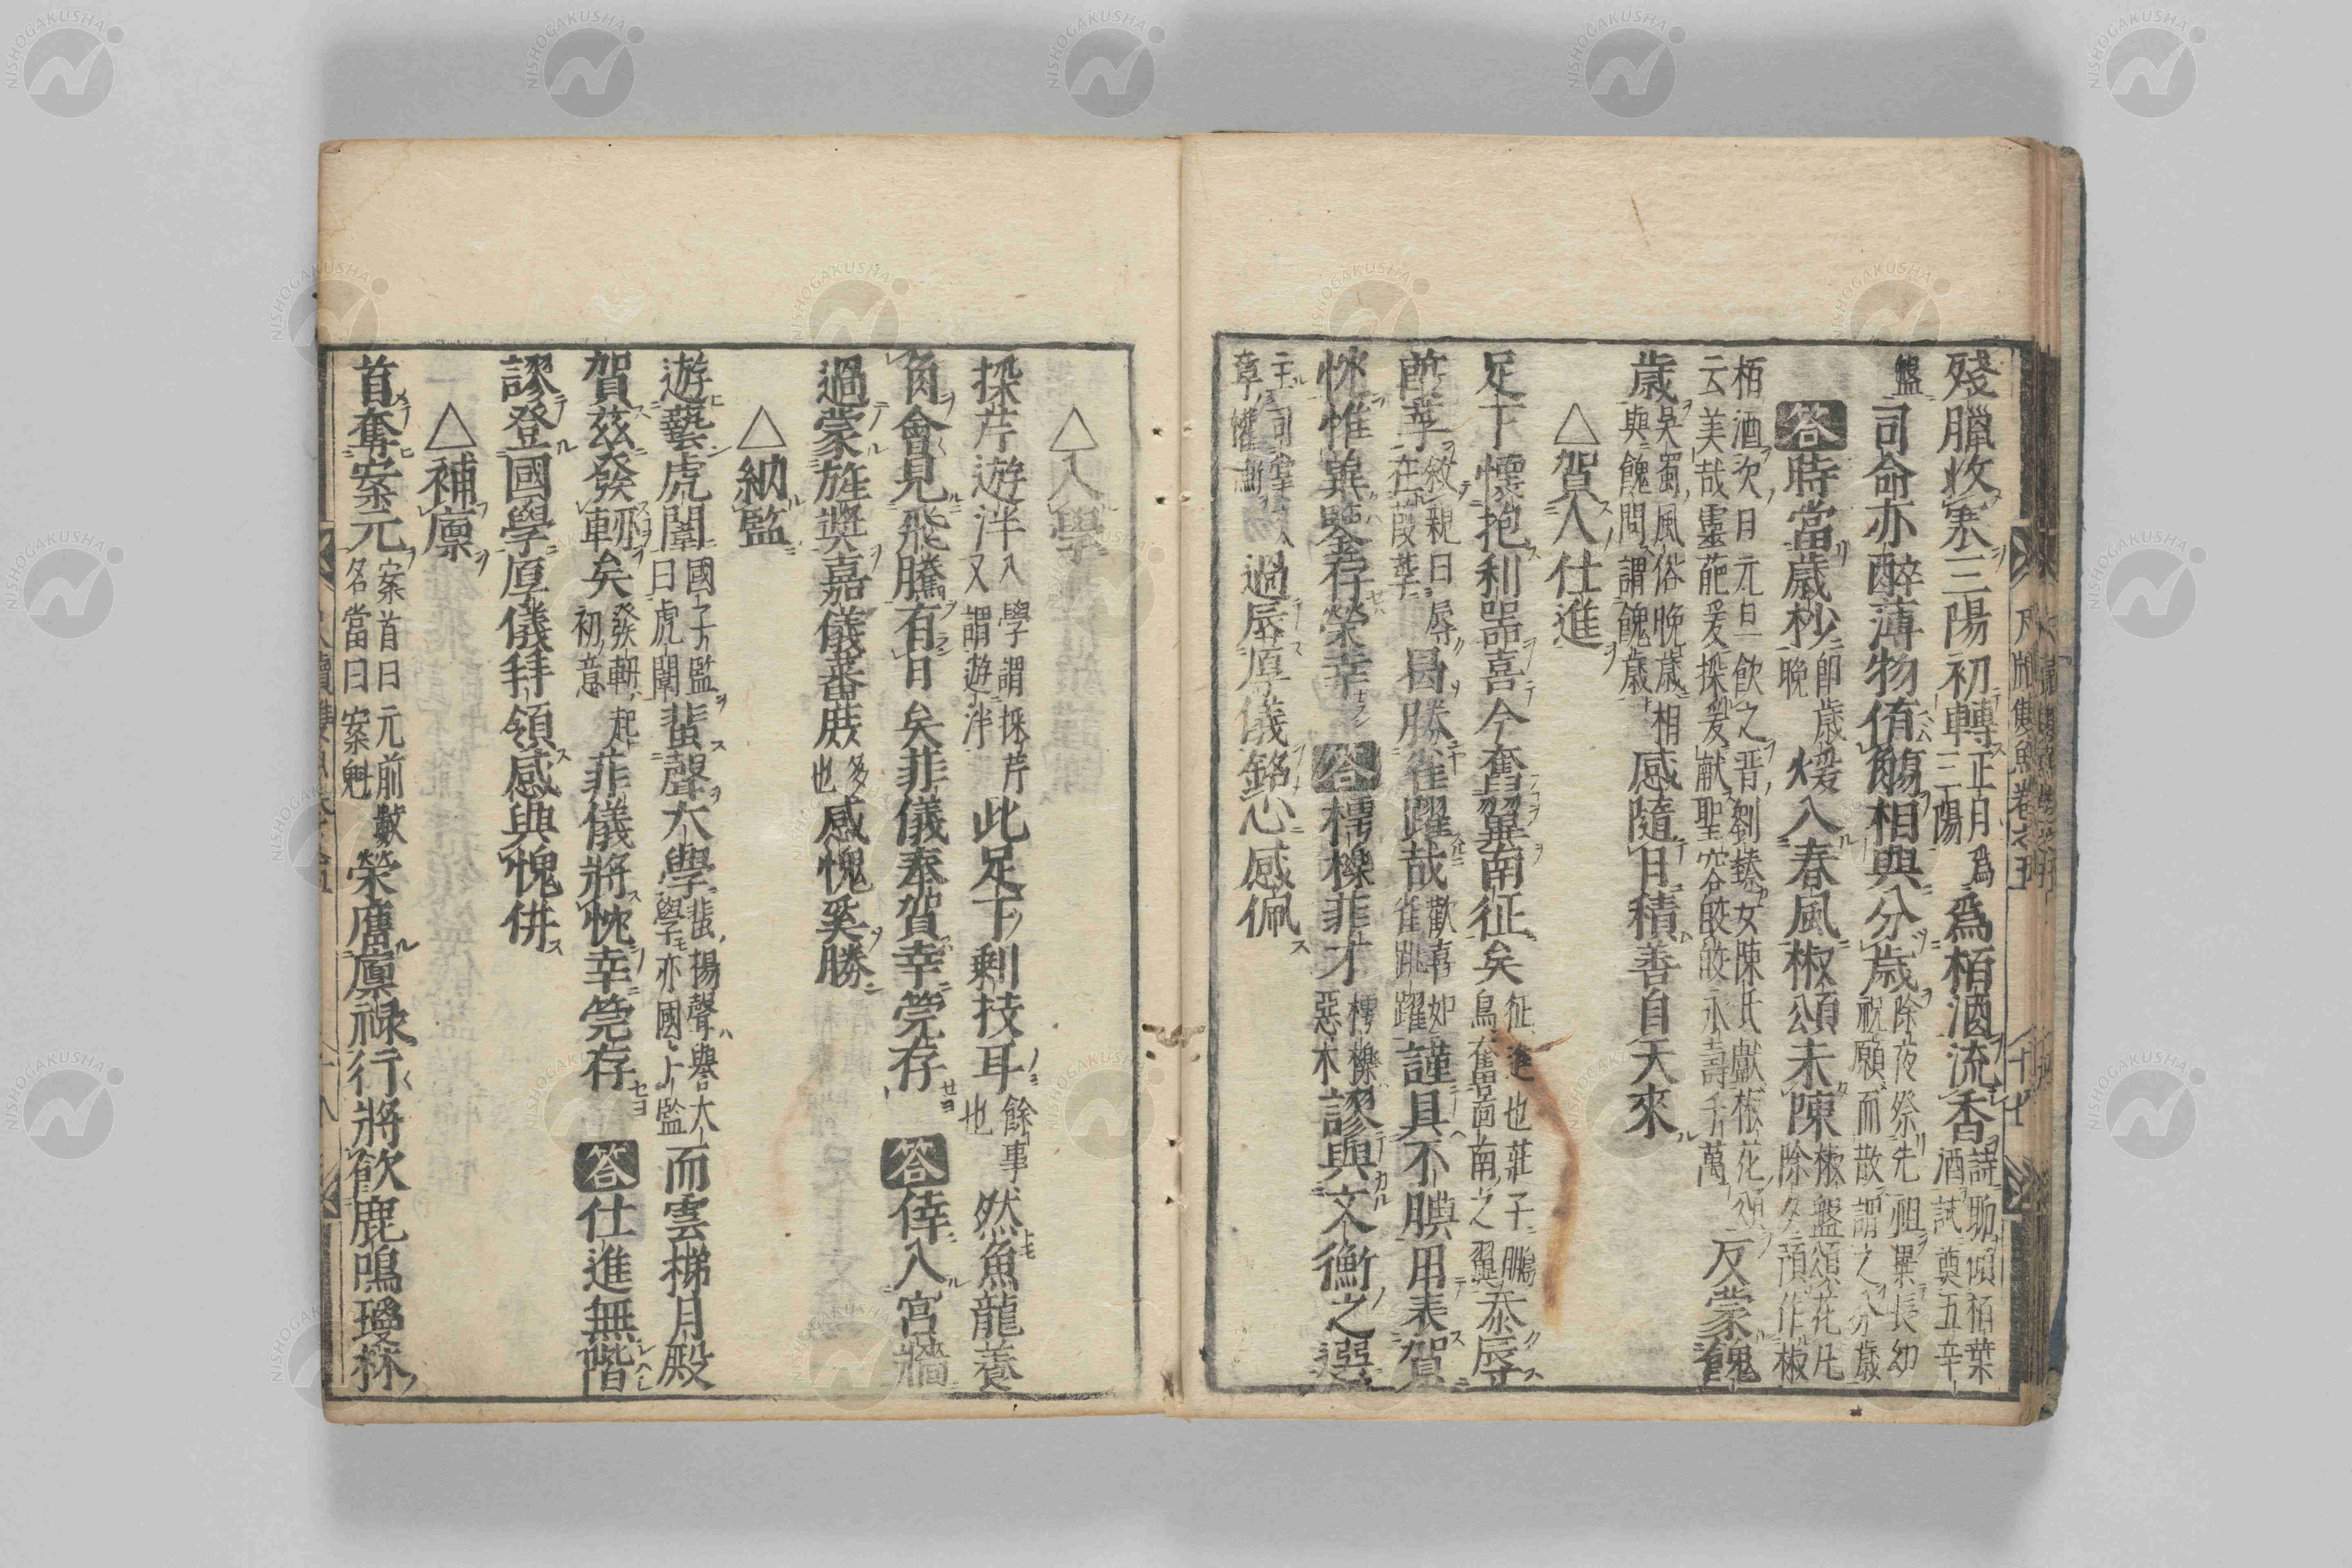 殘臘收寒三陽初轉正月爲三陽爲栢酒流香詩聊傾栢葉酒試奠五辛
盤司命亦醉薄物侑觴相與分歳除夜祭先祖畢長幼祝願而散謂之分歳
答時當歳杪即歳晩煖入春風椒頌未陳椒盤頌花凡除夕預作椒
栢酒次日元旦飲之晋劉臻女陳氏獻椒花頌云美哉靈葩爰採爰献聖容皎皎永壽千萬反蒙餽
歳吳蜀風俗晩歳相與餽問謂餽歳感隨日積善自天來
△賀人仕進
足下懷抱利噐喜今奮翼南征矣征進也莊子鵬鳥奮啚南之翼忝辱
葭莩敘親曰辱在葭莩曷勝雀躍哉歡喜如雀跳躍謹具不腆用表賀
忱惟兾鑒存榮幸答樗櫟菲才樗櫟惡木謬與文衡之選
主司掌文章權衡過辱厚儀銘心感佩
△入學
採芹遊泮入學謂採芹又謂遊泮此足下剰技耳餘事也然魚龍養
角會見飛騰有日矣菲儀奉賀幸莞存答倖入宮牆
過蒙旌奬嘉儀蕃庶多也感愧奚勝
△納監
遊藝虎闈國子監曰虎闈蜚聲大學蜚揚聲譽大學亦國上監而雲梯月殿
賀茲發軔矣發軔起初意菲儀將忱幸莞存答仕進無階
謬登國學厚儀拜領感與愧併
△補廩
首奪案元案首曰元前數名當曰案魁榮膺廩禄行將飲鹿鳴瓊林